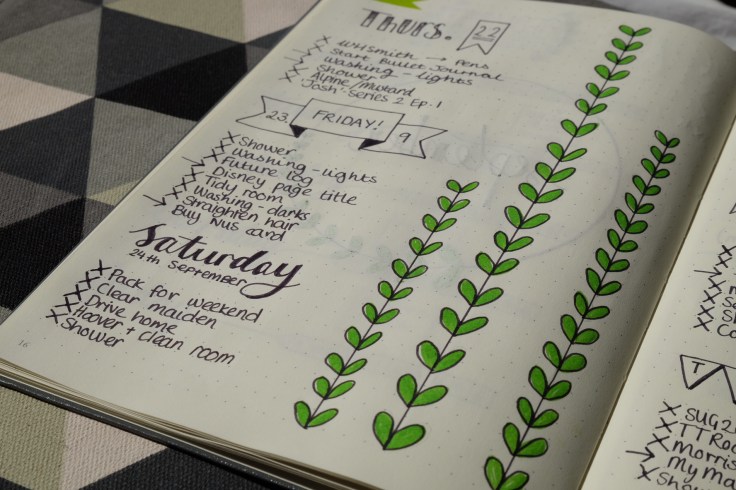 Thurs. 22
WHSmith → Pens
Start Bullet Journal
Washing - lights
Shower
Alpine/mustard
Josh: Series 2 Ep. 1
23 FRIDAY! 9
Shower
Washing - lights
Future log
Disney page title
Tidy room
Washing darks
Straighten hair
Buy NUS card
Saturday
24th September
Pack for weekend
Clear maiden
Drive home
Hoover + clean room
Shower
16
T
TT Roo
Morris
My ma